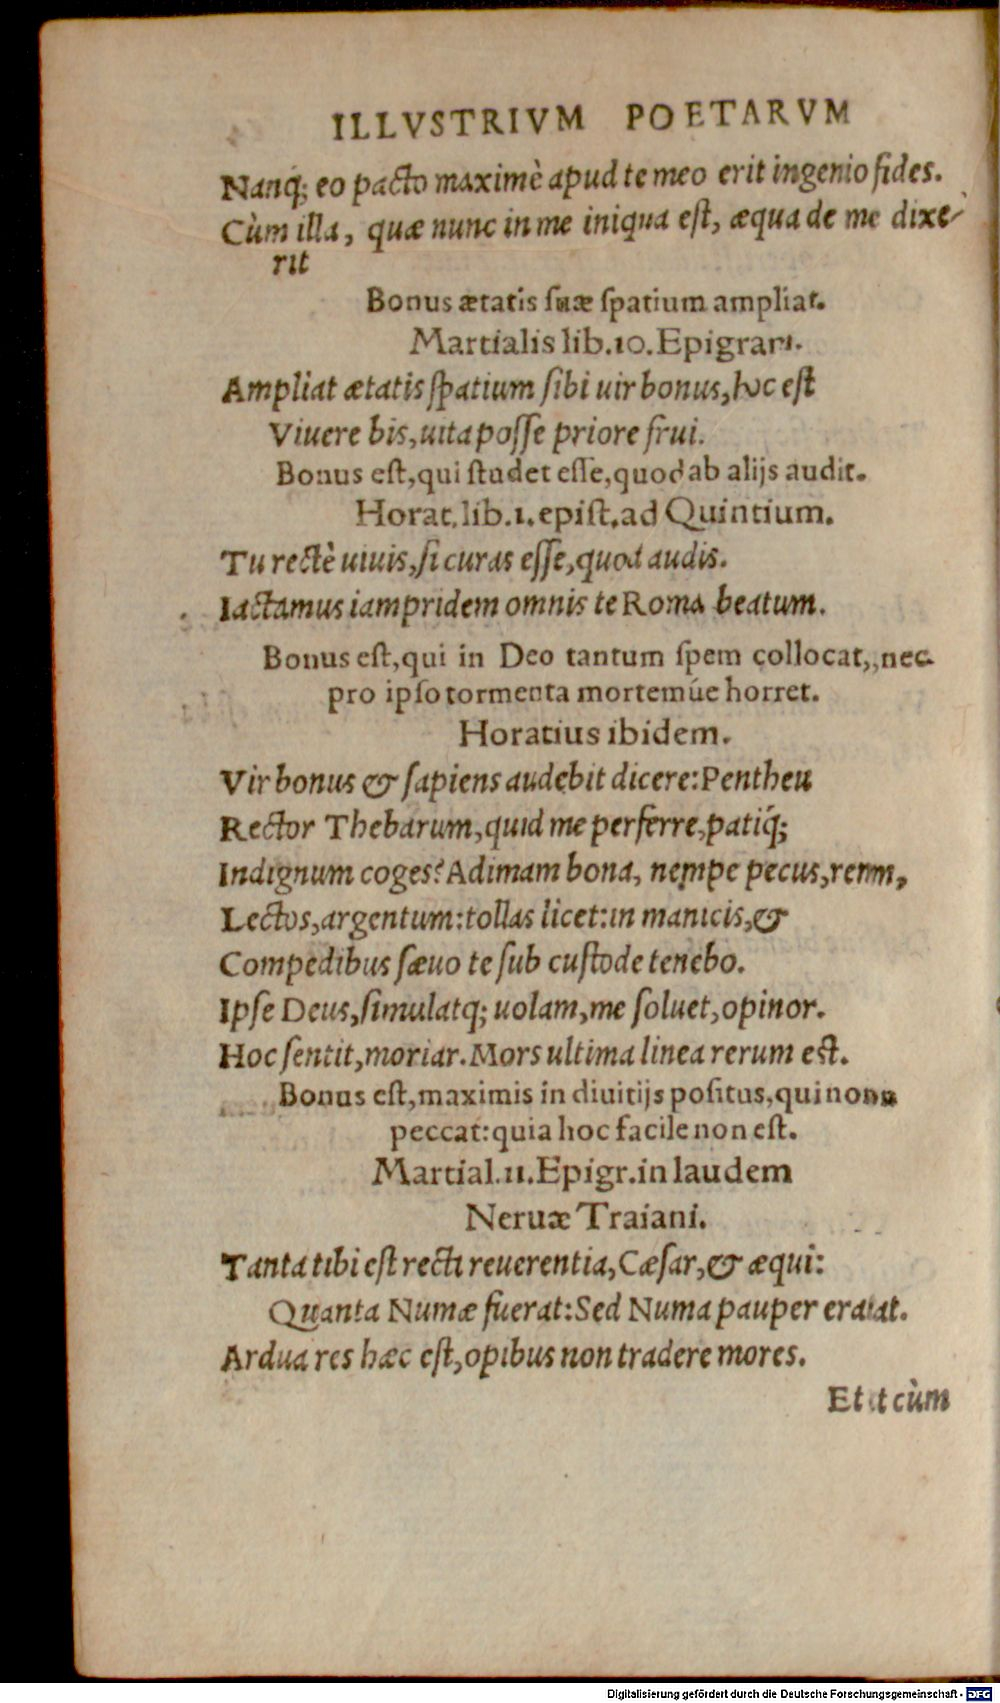 ILLVSTRIVM POETARVM
Nanq; eo pacto maximè apud te meo erit ingenio fides.
Cùm illa, quæ nunc in me iniqua eſt, æqua de me dixe-
rit
Bonus ætatis ſuæ ſpatium ampliat.
Martialis lib.10.Epigram.
Ampliat ætatis ſpatium ſibi uir bonus, hoc eſt
Viuere bis, uita poſſe priore frui.
Bonus eſt, qui ſtudet eſſe, quod ab alijs audit.
Horat. lib.1. epiſt. ad Quintium.
Tu rectè uiuis, ſi curas eſſe, quod audis.
Iactamus iampridem omnis te Roma beatum.
Bonus eſt, qui in Deo tantum ſpem collocat,, nec
pro ipſo tormenta mortemúe horret.
Horatius ibidem.
Vir bonus & ſapiens audebit dicere: Pentheu
Rector Thebarum, quid me perferre, patiq́;
Indignum coges? Adimam bona, nempe pecus, rem,
Lectos, argentum: tollas licet: in manicis, &
Compedibus ſæuo te ſub cuſtode tenebo.
Ipſe Deus, ſimulatq; uolam, me ſoluet, opinor.
Hoc ſentit, moriar. Mors ultima linea rerum eſt.
Bonus eſt, maximis in diuitijs poſitus, qui non
peccat: quia hoc facile non eſt.
Martial. 11. Epigr. in laudem
Neruæ Traiani.
Tanta tibi eſt recti reuerentia, Cæſar, & æqui:
Quanta Numæ fuerat: Sed Numa pauper erat.
Ardua res hæc eſt, opibus non tradere mores.
Et cùm
Digitalisierung gefördert durch die Deutsche Forschungsgemeinschaft - DFG